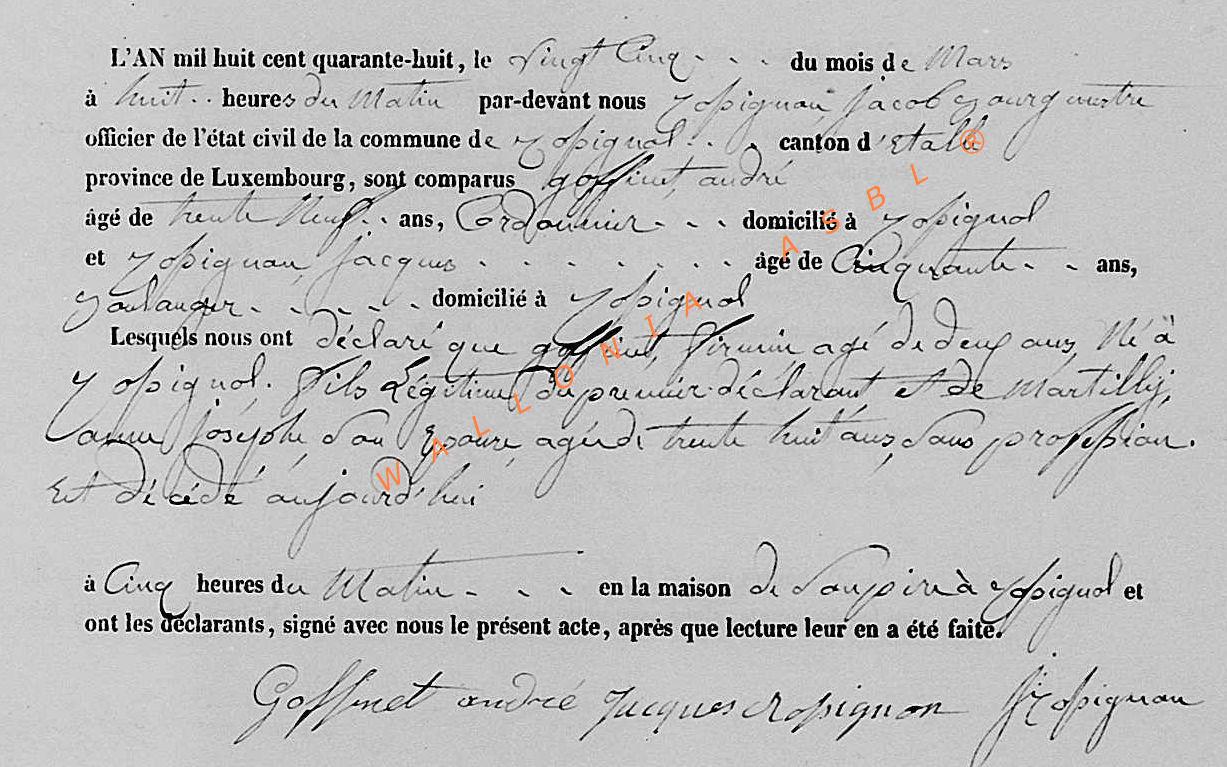 L'AN mil huit cent quarante-huit, le vingt Cinq - - - du mois de Mars
à huit .. heures du Matin par-devant nous Rossignon Jacob Bourgmestre
officier de l'état civil de la commune de Rossignol . . . canton d'Etalle
province de Luxembourg, sont comparus goffinet, andré
âgé de trente Neuf . . ans, Cordonnier - - - domicilié à Rossignol
et Rossignon Jacques - - - - - - - - âgé de Cinquante - - ans,
Boulanger - - - - - domicilié à Rossignol
Lesquels nous ont déclaré que goffinet, firmin agé de deux ans, Né à
Rossignol. fils Légitime du premier déclarant et de Martilly,
anne Joséphe son Epouse, agée de trente huit ans, Sans profession.
Est décédé aujourd'hui
à Cinq heures du Matin - - - en la maison de Son père à Rossignol et
ont les déclarants, signé avec nous le présent acte, après que lecture leur en a été faite.
Goffinet andré Jacques Rossignon J Rossignon
WALLONIA ASBL ©